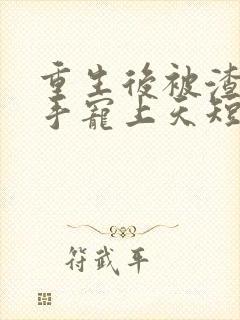 重生後被渣
手寵上天短
符武平